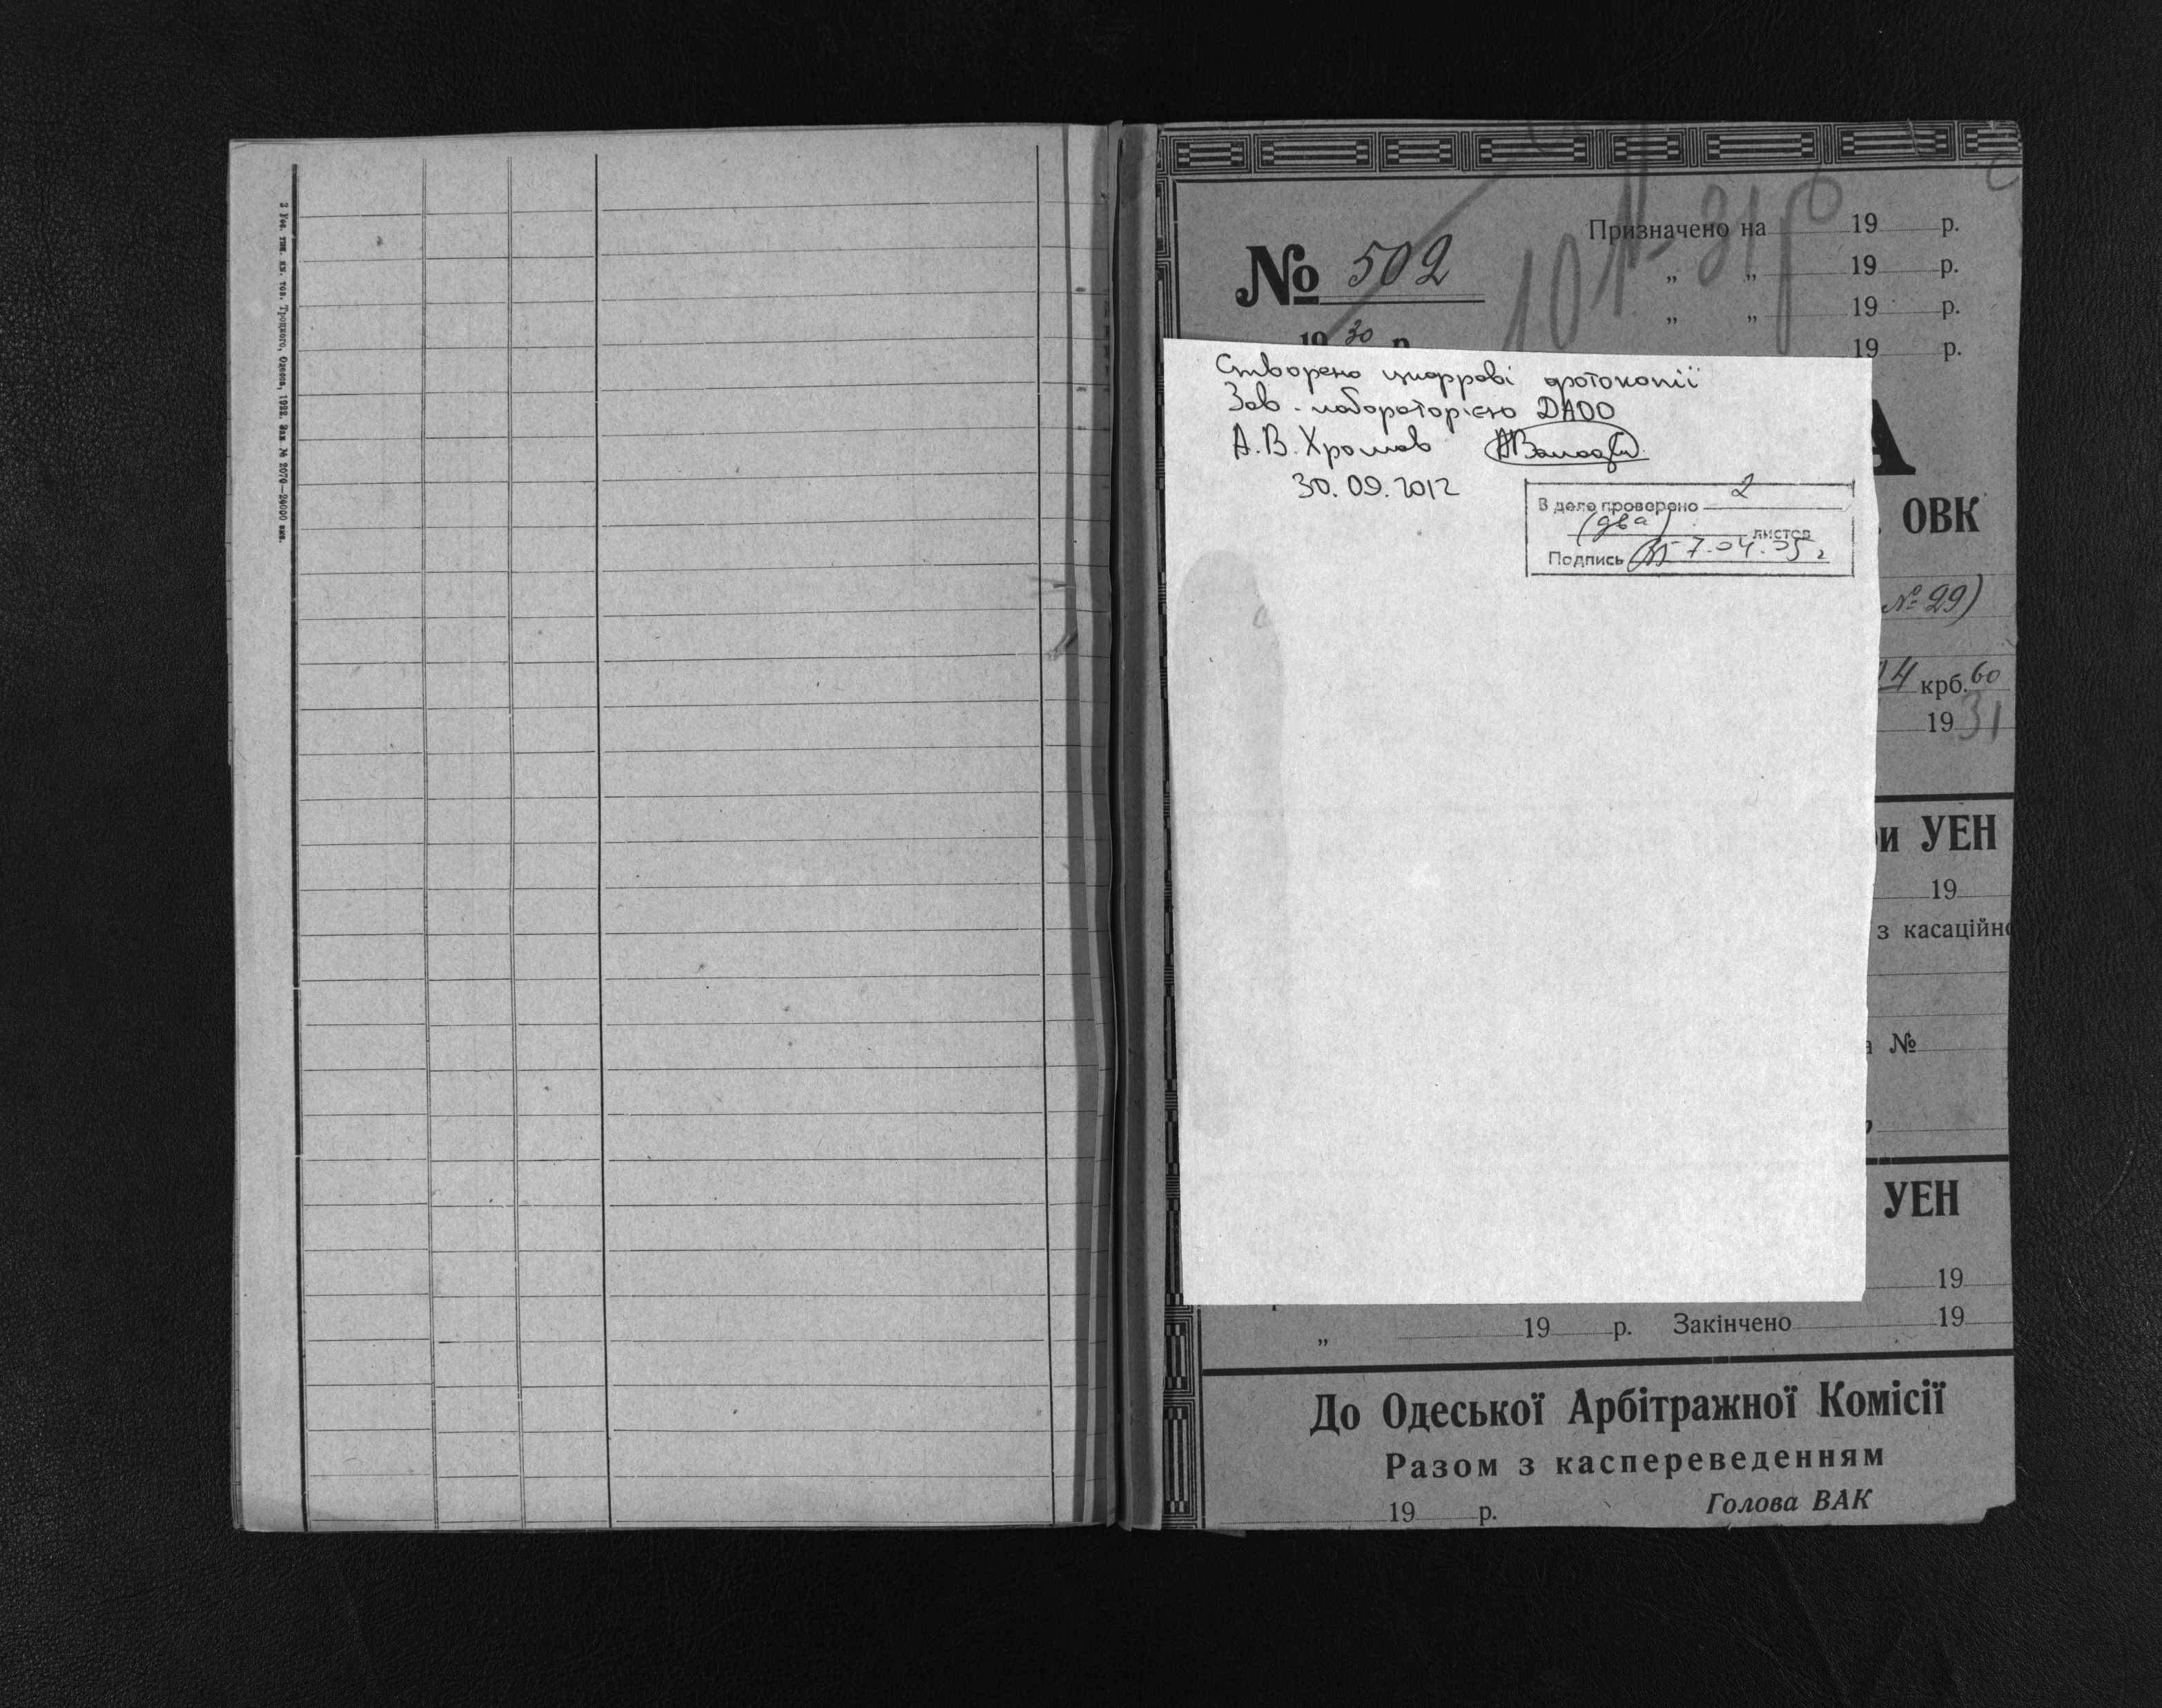 3 Уос. тип. кн. тов. Троцкого, Одесса, 1922. Зак. № 2070—24000 экз.
№ 502
19 30 р.
Призначено на 19 р.
„ „ 19 р.
„ „ 19 р.
19 р.
Створено цифрові фотокопії
Зав. лабораторією ДАОО
А. В. Хромов
30.09.2012
В деле проверено 2
(два) листов
Подпись 7.04.05 г
А
ОВК
№ 29)
4 крб. 60
19 31
и УЕН
19
з касаційно
№
УЕН
19
„ 19 р. Закінчено 19
До Одеської Арбітражної Комісії
Разом з каспереведенням
19 р. Голова ВАК